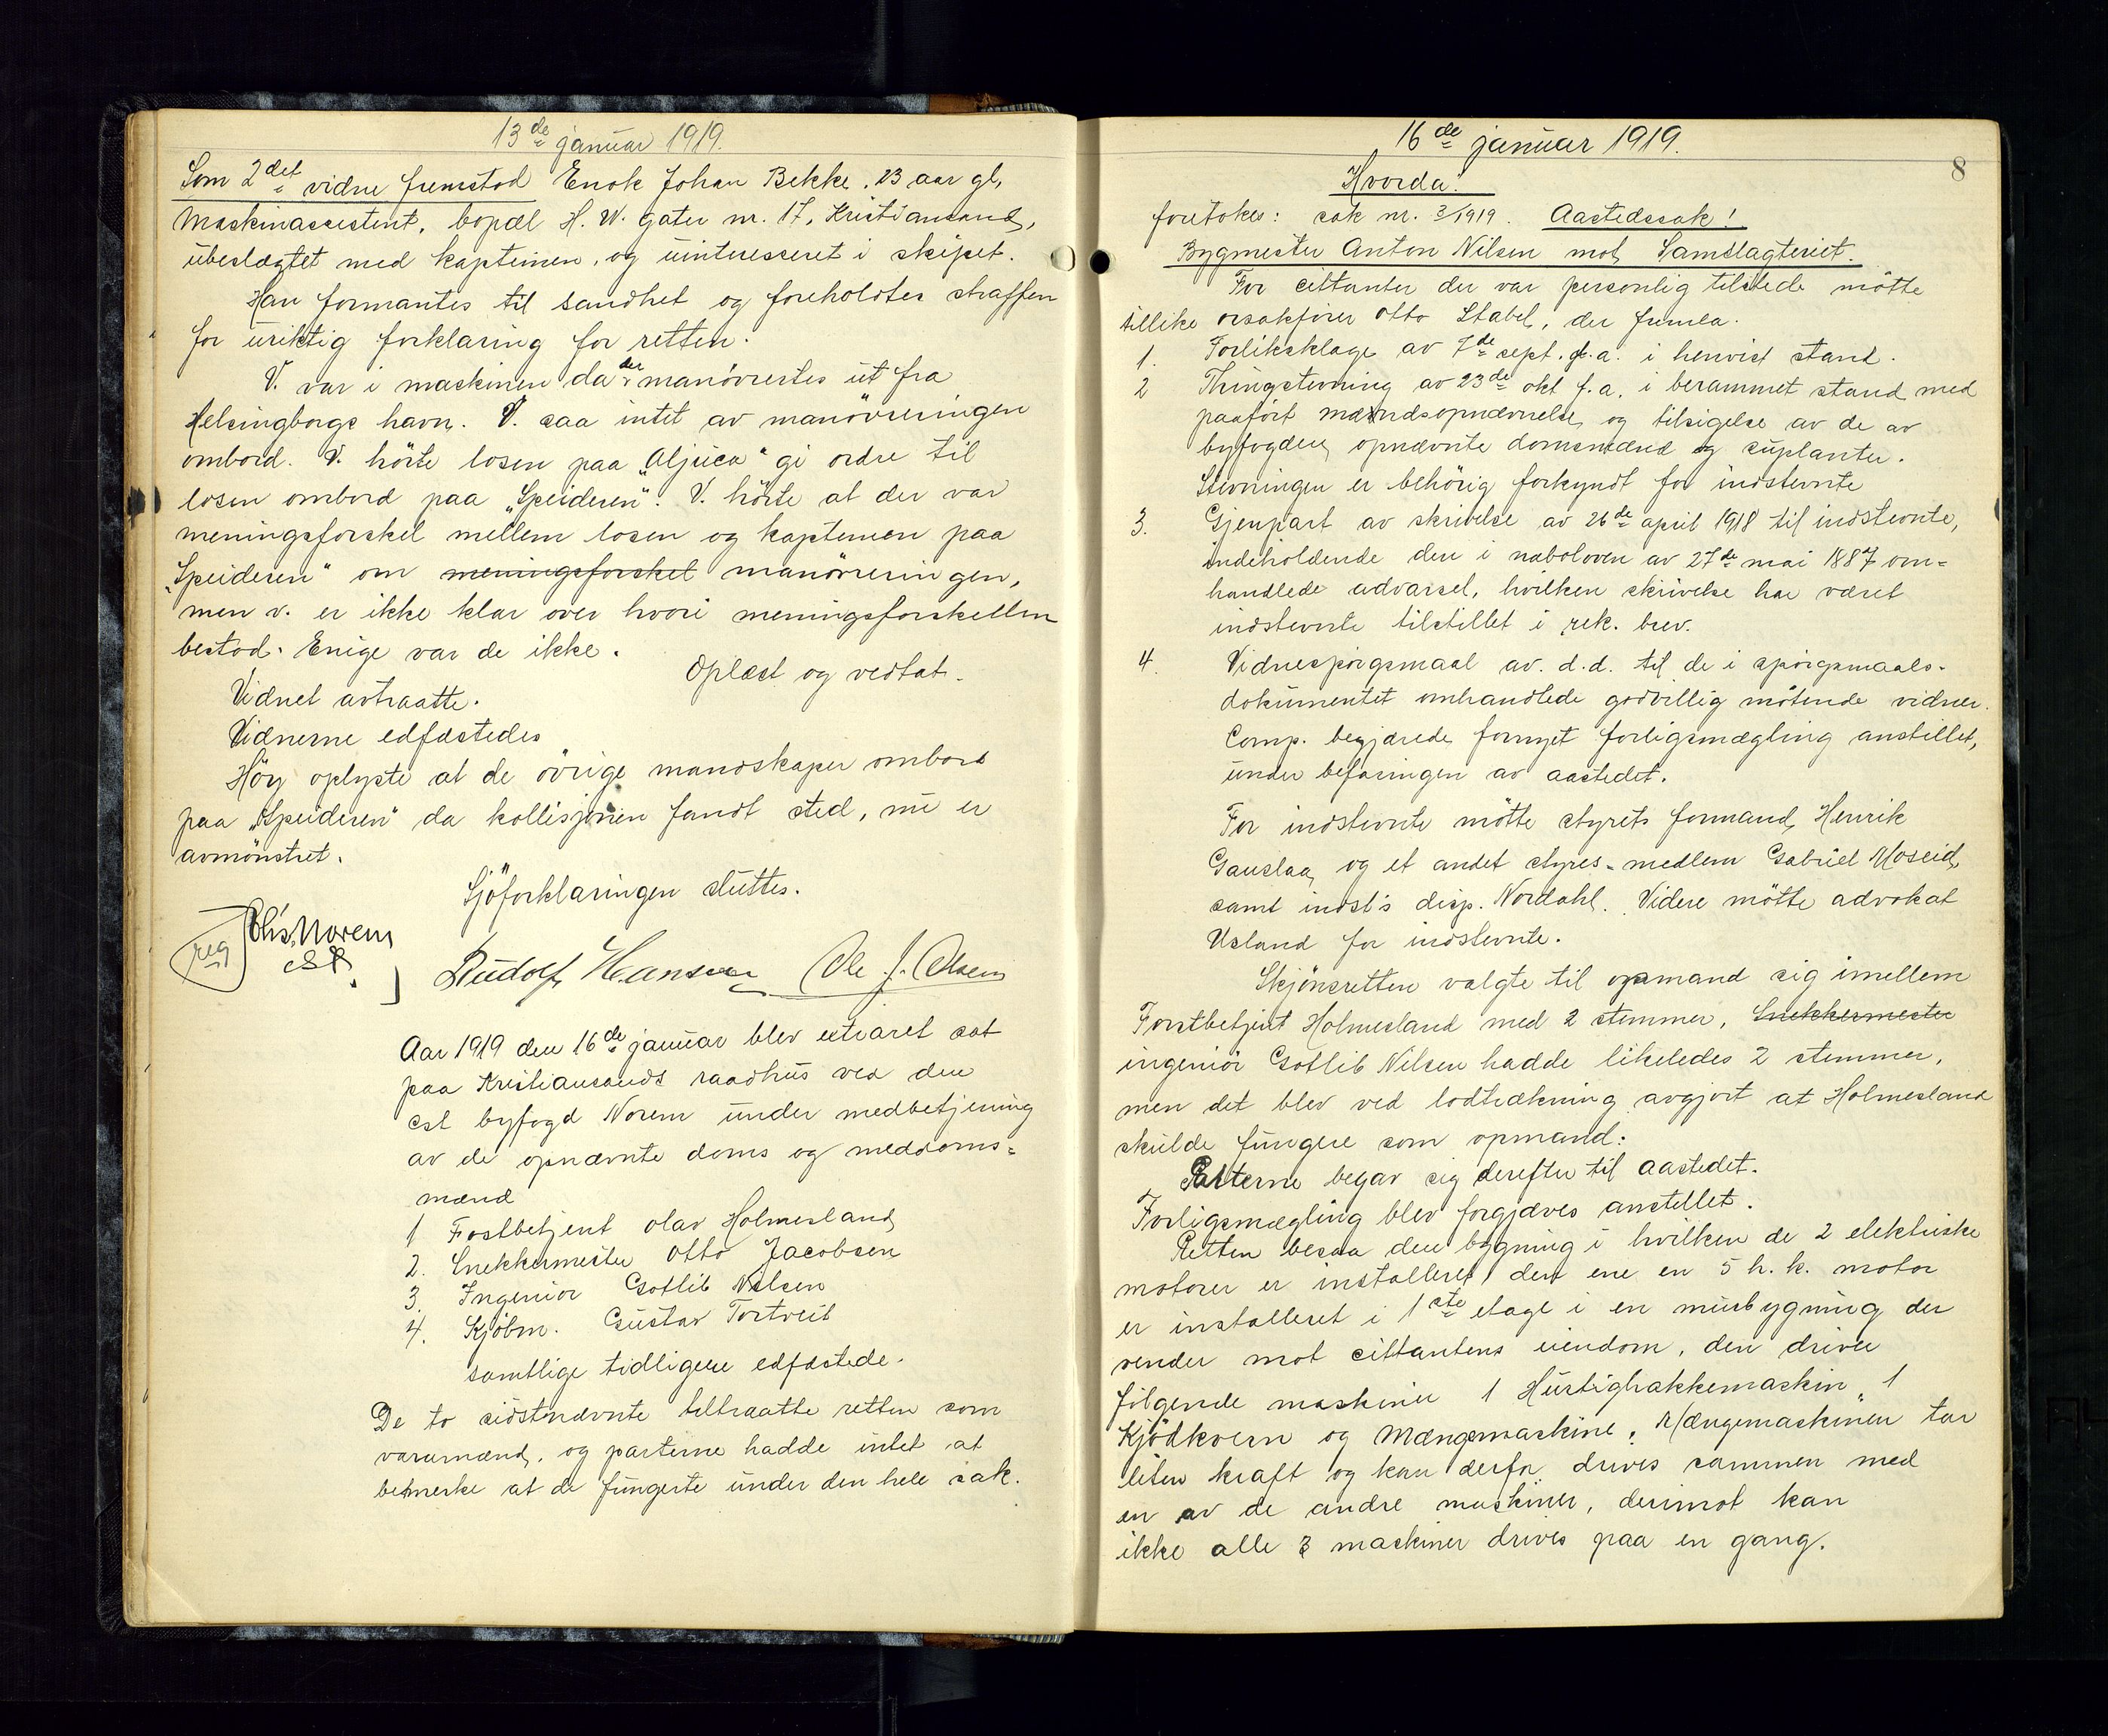 13de januar 1919.
Som 2det vidne fremstod Enok Johan Bekke, 23 aar gl,
Maskinassistent, bopæl H. W. gaten nr. 17, Kristiansand,
ubeslægtet med kapteinen, og uinteresseret i skipet.
Han formantes til sandhet og foreholdtes straffen
for uriktig forklaring for retten.
V. var i maskinen da der manövrertes ut fra
Helsingborgs havn. V. saa intet av manövreringen
ombord. V. hörte losen paa „Aljuca" gi ordre til
losen ombord paa „Speideren". V. hörte at der var
meningsforskel mellem losen og kapteinen paa
„Speideren" om meningsforskel manövreringen,
men v. er ikke klar over hvori meningsforskellen
bestod. Enige var de ikke.
Oplæst og vedtat.
Vidnet avtraatte.
Vidnerne edfæstedes
Höy oplyste at de övrige mandskaper ombord
paa „Speideren" da kollisjonen fandt sted, nu er
avmönstret.
Sjöforklaringen sluttes.
reg
Chs. Norem
cst.
Rudolf Hansen Ole J. Olsen
Aar 1919 den 16de januar blev extraret sat
paa Kristiansands raadhus ved den
cst byfogd Norem under medbetjening
av de opnævnte doms og meddoms=
mænd
1 Forstbetjent Olav Holmesland
2. Snekkermester Otto Jacobsen
3. Ingeniör Gotlib Nilsen
4. Kjöbm. Gustav Tortveit
samtlige tidligere edfæstede.
De to sidstnævnte tiltraatte retten som
varamænd, og parterne hadde intet at
bemerke at de fungerte under den hele sak.
16de januar 1919.
8
Hvorda!
foretokes: sak nr. 3/1919. Aastedssak!
Bygmester Anton Nilsen mot Samslagteriet.
For cittanten der var personlig tilstede mötte
tillike orsakförer Otto Stabel, der fremla.
1. Forliksklage av 7de sept. f.a. i henvist stand.
2 Thingstevning av 23de okt f.a. i berammet stand med
paafört mændsopnævnelse og tilsigelse av de av
byfogden opnævnte domsmænd og suplanter.
Stevningen er behörig forkyndt for indstevnte
3. Gjenpart av skrivelse av 26de april 1918 til indstevnte,
indeholdende den i naboloven av 27de mai 1887 om=
handlede advarsel, hvilken skrivelse har været
indstevnte tilstillet i rek. brev.
4. Vidnespörgsmaal av. d.d. til de i spörgsmaals-
dokumentet omhandlede godvillig mötende vidner.
Comp. begjærede fornyet forligsmægling anstillet,
under befaringen av aastedet.
For indstevnte mötte styrets formand, Henrik
Gauslaa, og et andet styres-medlem Gabriel Moseid,
samt indst's disp. Nordahl. Videre mötte advokat
Usland for indstevnte.
Skjönsretten valgte til opmand sig imellem
Forstbetjent Holmesland med 2 stemmer, Snekkermester
ingeniör Gotlib Nilsen hadde likeledes 2 stemmer,
men det blev ved lodtrækning avgjort at Holmesland
skulde fungere som opmand:
Parterne begav sig derefter til aastedet.
Forligsmægling blev forgjæves anstillet.
Retten besaa den bygning i hvilken de 2 elektriske
motorer er installeret, den ene en 5 h.k. motor
er installeret i 1ste etage i en murbygning der
vender mot cittantens eiendom, den driver
fölgende maskiner 1 Hurtighakkemaskin, 1
Kjödkvern og Mængemaskine, Mængemaskinen tar
liten kraft og kan derfor drives sammen med
en av de andre maskiner, derimot kan
ikke alle 3 maskiner drives paa en gang.